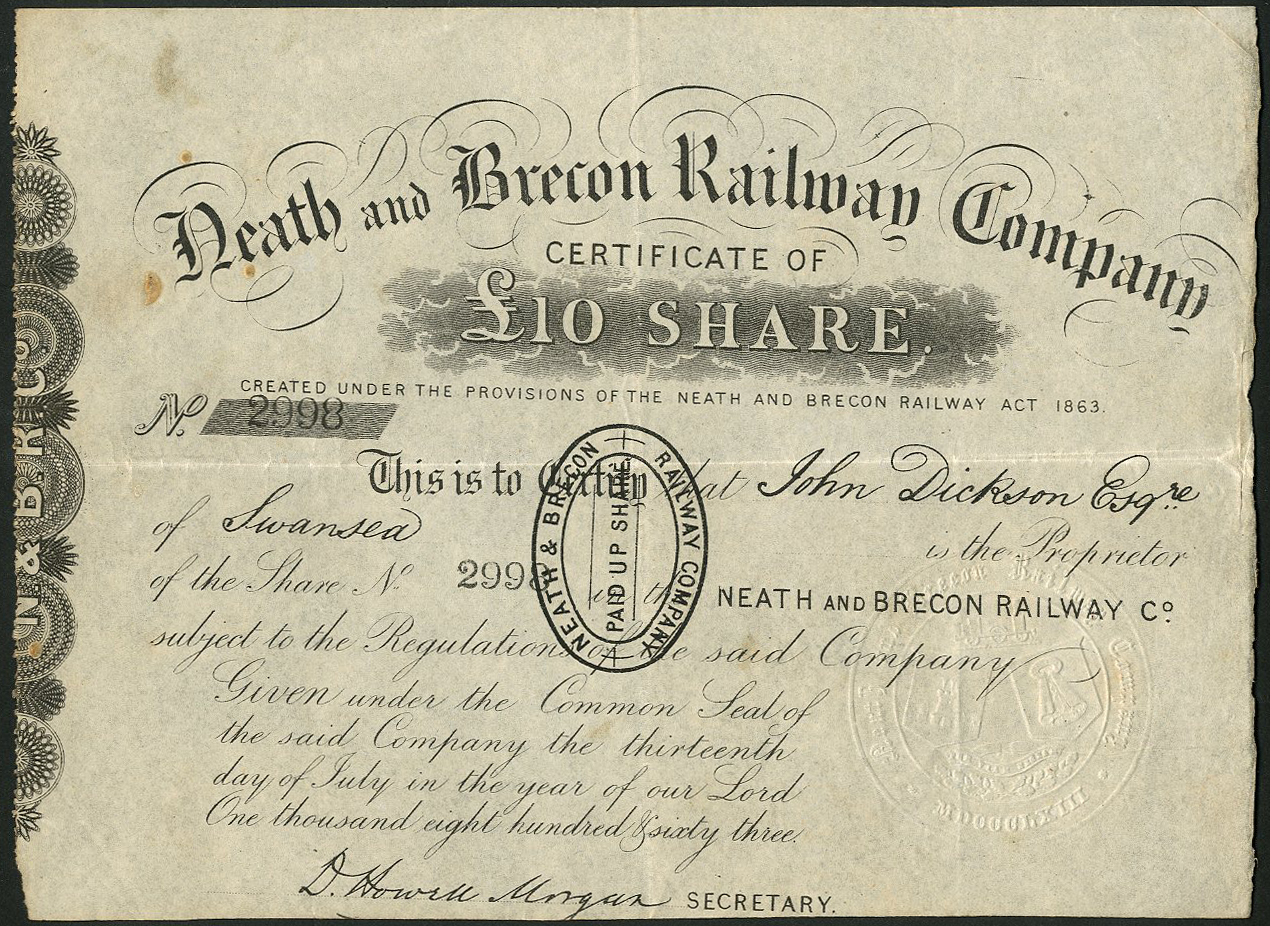 Neath and Brecon Railway Company
CERTIFICATE OF
£10 SHARE.
CREATED UNDER THE PROVISIONS OF THE NEATH AND BRECON RAILWAY ACT 1863.
No. 2998
This is to Certify that John Dickson Esqre
of Swansea is the Proprietor
of the Share No. 2998 in the NEATH AND BRECON RAILWAY Co.
subject to the Regulations of the said Company
Given under the Common Seal of
the said Company the thirteenth
day of July in the year of our Lord
One thousand eight hundred & sixty three.
D. Howell Morgan SECRETARY.
NEATH & BRECON RAILWAY COMPANY
PAID UP SHARE
N & B R Co.
MDCCCLXIII